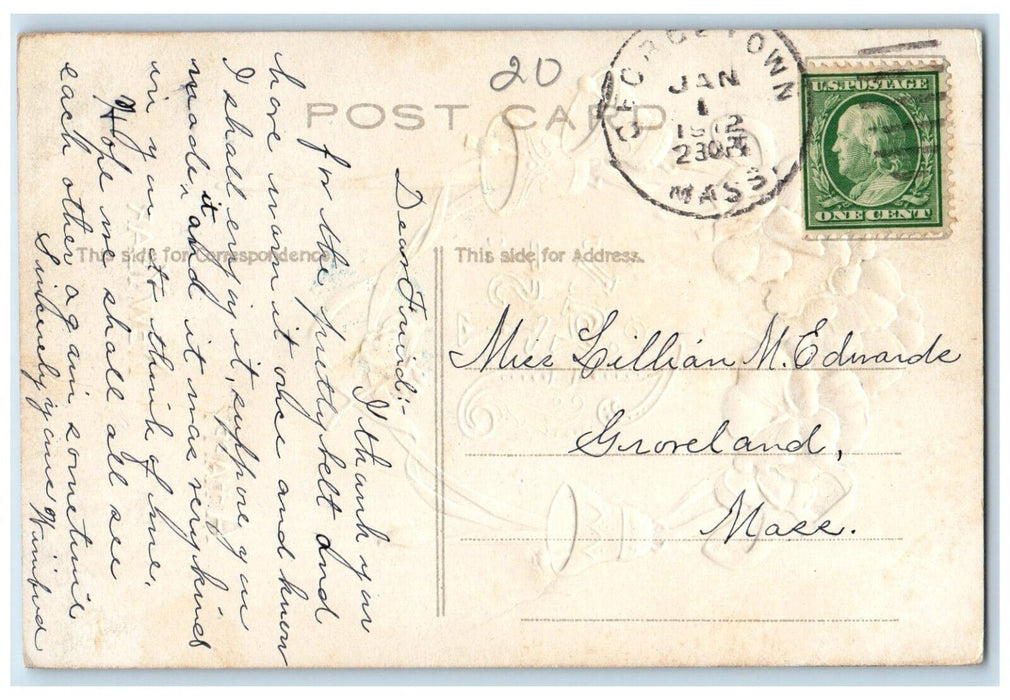 20
POST CARD
GEORGETOWN
JAN
1
1912
MASS.
U.S. POSTAGE
ONE CENT
This side for Correspondence.
This side for Address.
Dear Friend:-
I thank you
for the pretty belt and
have worn it once and know
I shall enjoy it, suppose you
made it and it was very kind
in you to think of me.
Hope we shall all see
each other again sometime
Sincerely yours Winifred
Miss Lillian M. Edwards
Groveland,
Mass.